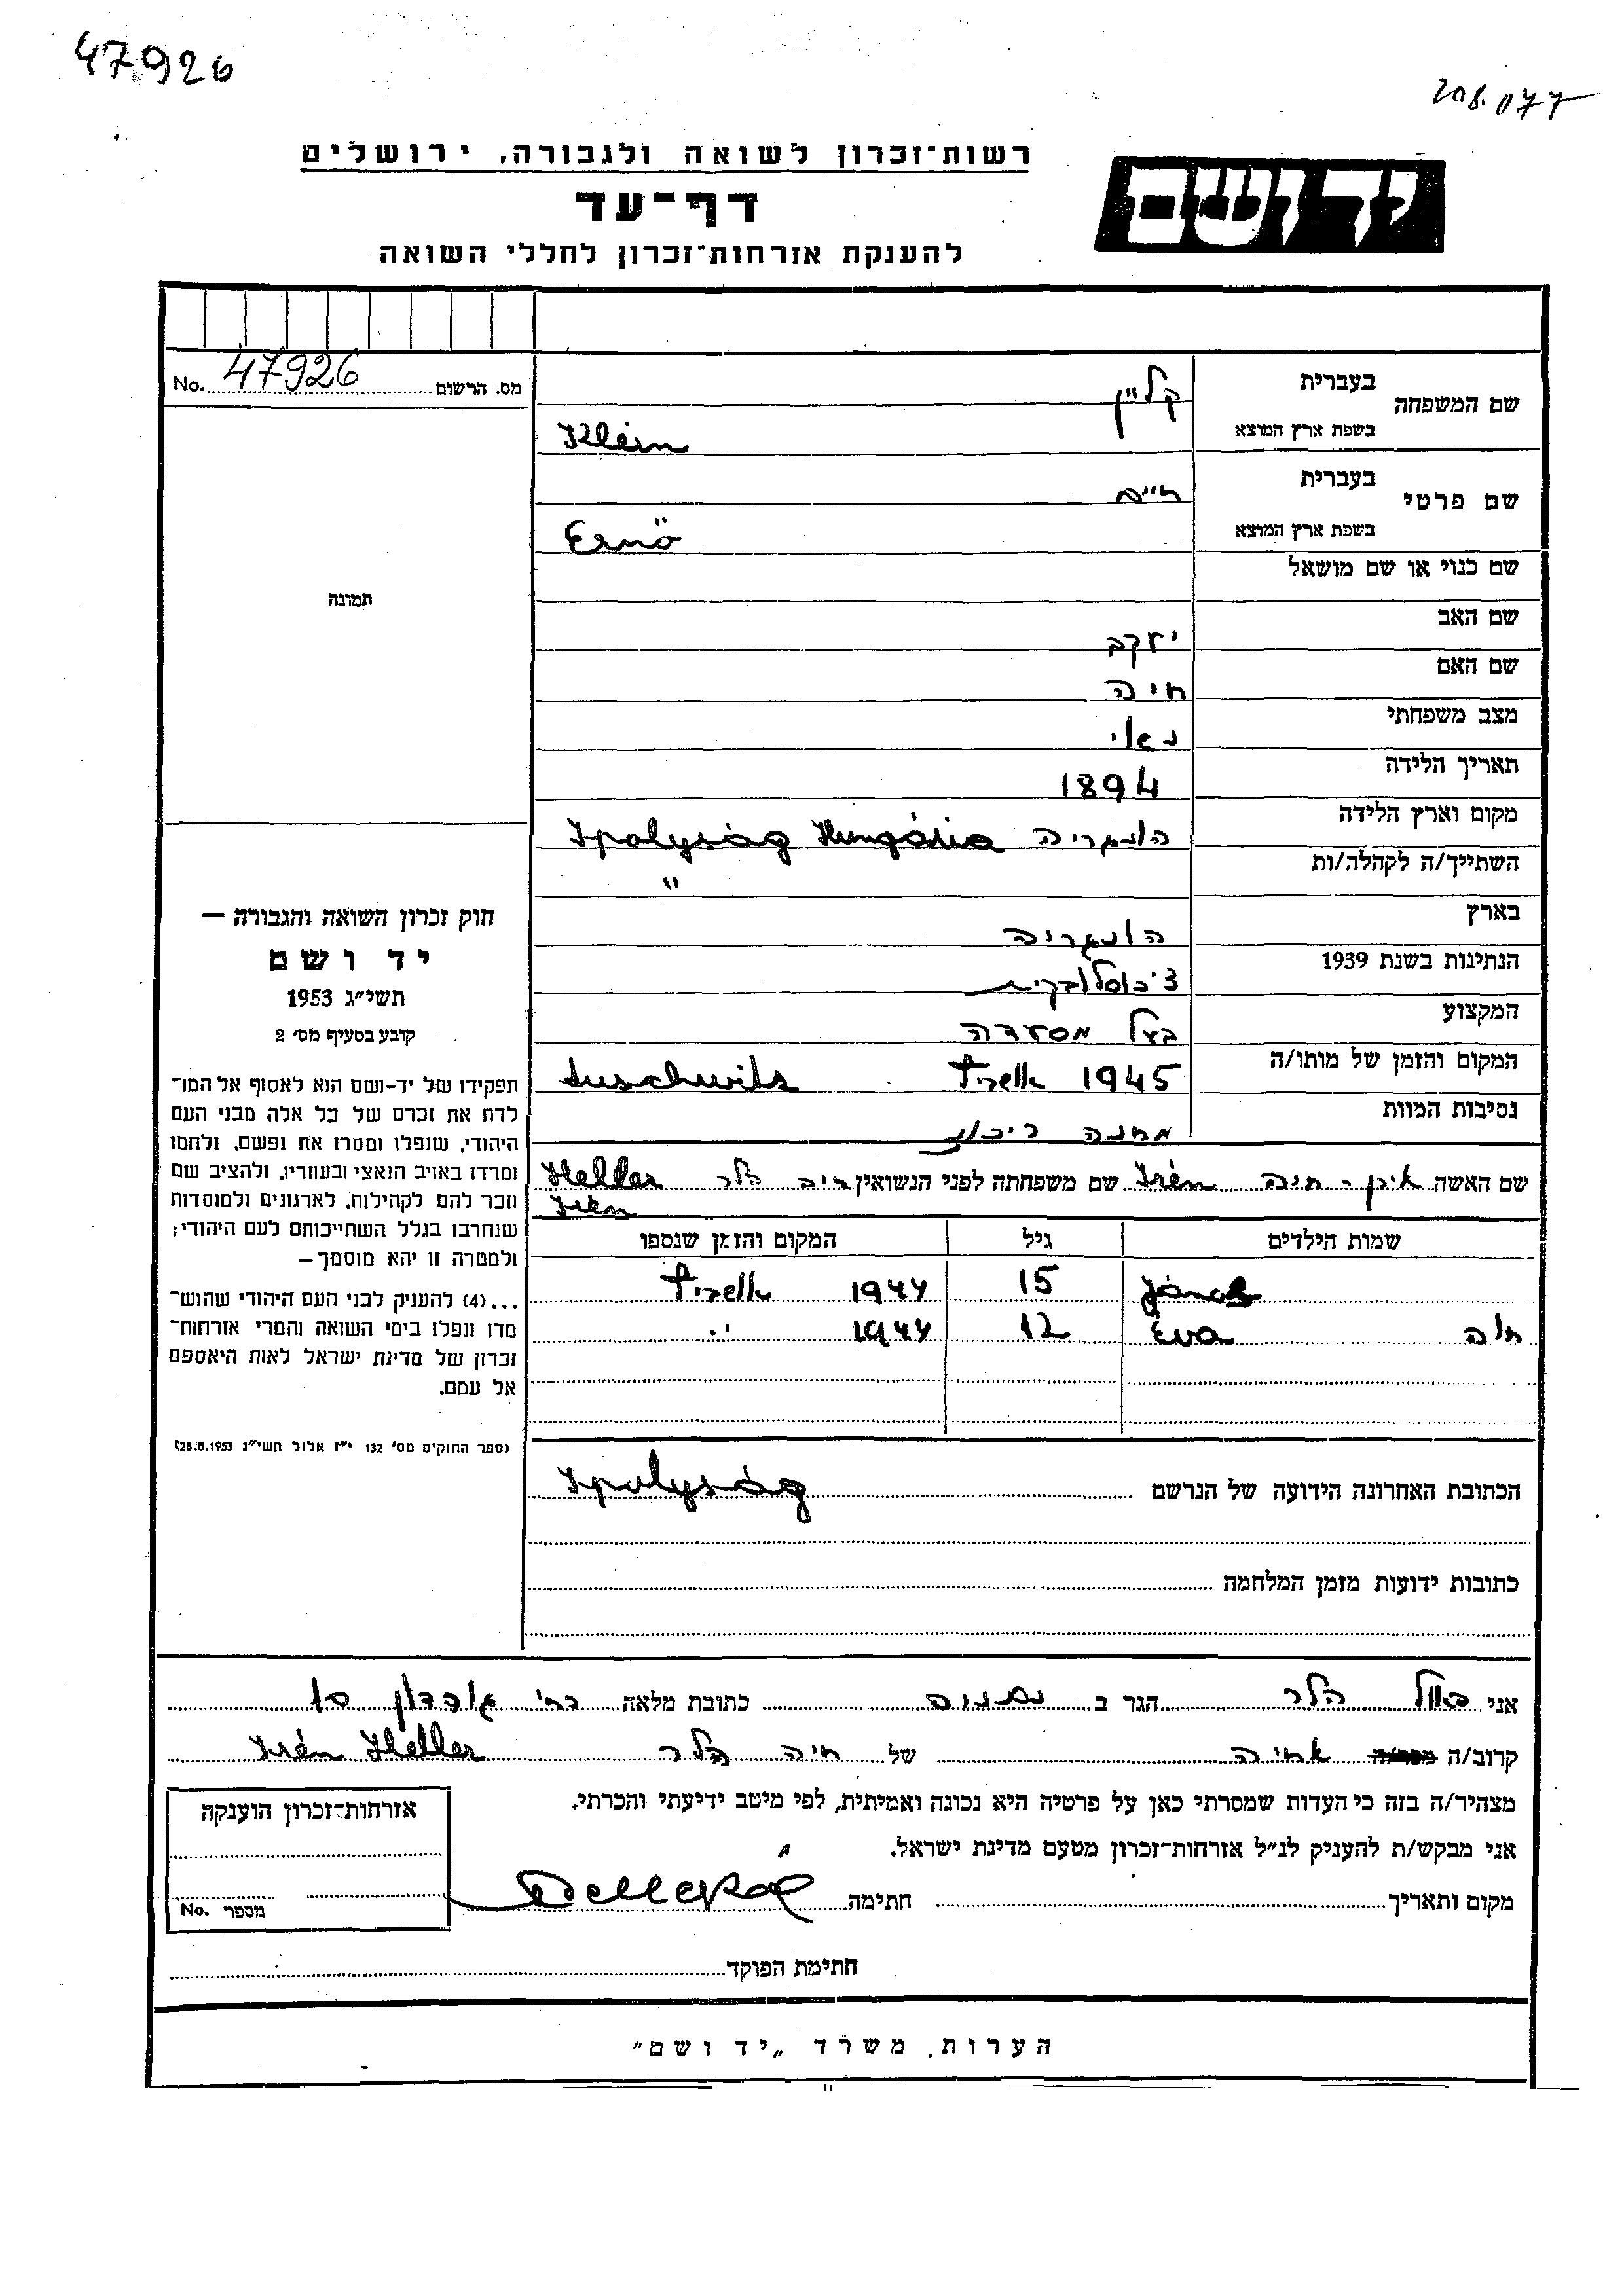 47926
רשות־זכרון לשואה ולגבורה, ירושלים
ידושם
דף־עד
להענקת אזרחות־זכרון לחללי השואה
מס. הרשום 47926 No.
שם המשפחה
בעברית קליין
בשפת ארץ המוצא Klein
שם פרטי
בעברית חיים
בשפת ארץ המוצא Ernö
שם כנוי או שם מושאל
שם האב יעקב
שם האם חיה
מצב משפחתי נשוי
תאריך הלידה 1894
מקום וארץ הלידה הונגריה Ipolyság Hungária
השתייך/ה לקהלה/ות "
בארץ הונגריה
הנתינות בשנת 1939 צ'כוסלובקית
המקצוע בעל מסעדה
המקום והזמן של מותו/ה 1945 אושויץ Auschwits
נסיבות המוות מחנה ריכוז
שם האשה אירן - חיה Irén שם משפחתה לפני הנשואין חיה הלר Heller
Irén
שמות הילדים גיל המקום והזמן שנספו
János 15 1944 אושויץ
חוה Éva 12 1944 "
תמונה
חוק זכרון השואה והגבורה —
יד ושם
תשי״ג 1953
קובע בסעיף מס׳ 2
תפקידו של יד-ושם הוא לאסוף אל המו־
לדת את זכרם של כל אלה מבני העם
היהודי, שנפלו ומסרו את נפשם, נלחמו
ומרדו באויב הנאצי ובעוזריו, ולהציב שם
וזכר להם לקהילות, לארגונים ולמוסדות
שנחרבו בגלל השתייכותם לעם היהודי;
ולמטרה זו יהא מוסמך—
...(4) להעניק לבני העם היהודי שהוש־
מדו ונפלו בימי השואה והמרי אזרחות־
זכרון של מדינת ישראל לאות היאספם
אל עמם.
(ספר החוקים מס׳ 132 י״ז אלול תשי״ג 28.8.1953)
הכתובת האחרונה הידועה של הנרשם Ipolyság
כתובות ידועות מזמן המלחמה
אני הלר הגר ב נתניה כתובת מלאה רח' גורדון 10
קרוב/ה אחיה של חיה הלר Irén Heller
מצהיר/ה בזה כי העדות שמסרתי כאן על פרטיה היא נכונה ואמיתית, לפי מיטב ידיעתי והכרתי.
אני מבקש/ת להעניק לנ״ל אזרחות־זכרון מטעם מדינת ישראל.
מקום ותאריך חתימה
חתימת הפוקד
אזרחות־זכרון הוענקה
מספר No.
הערות משרד „יד ושם״